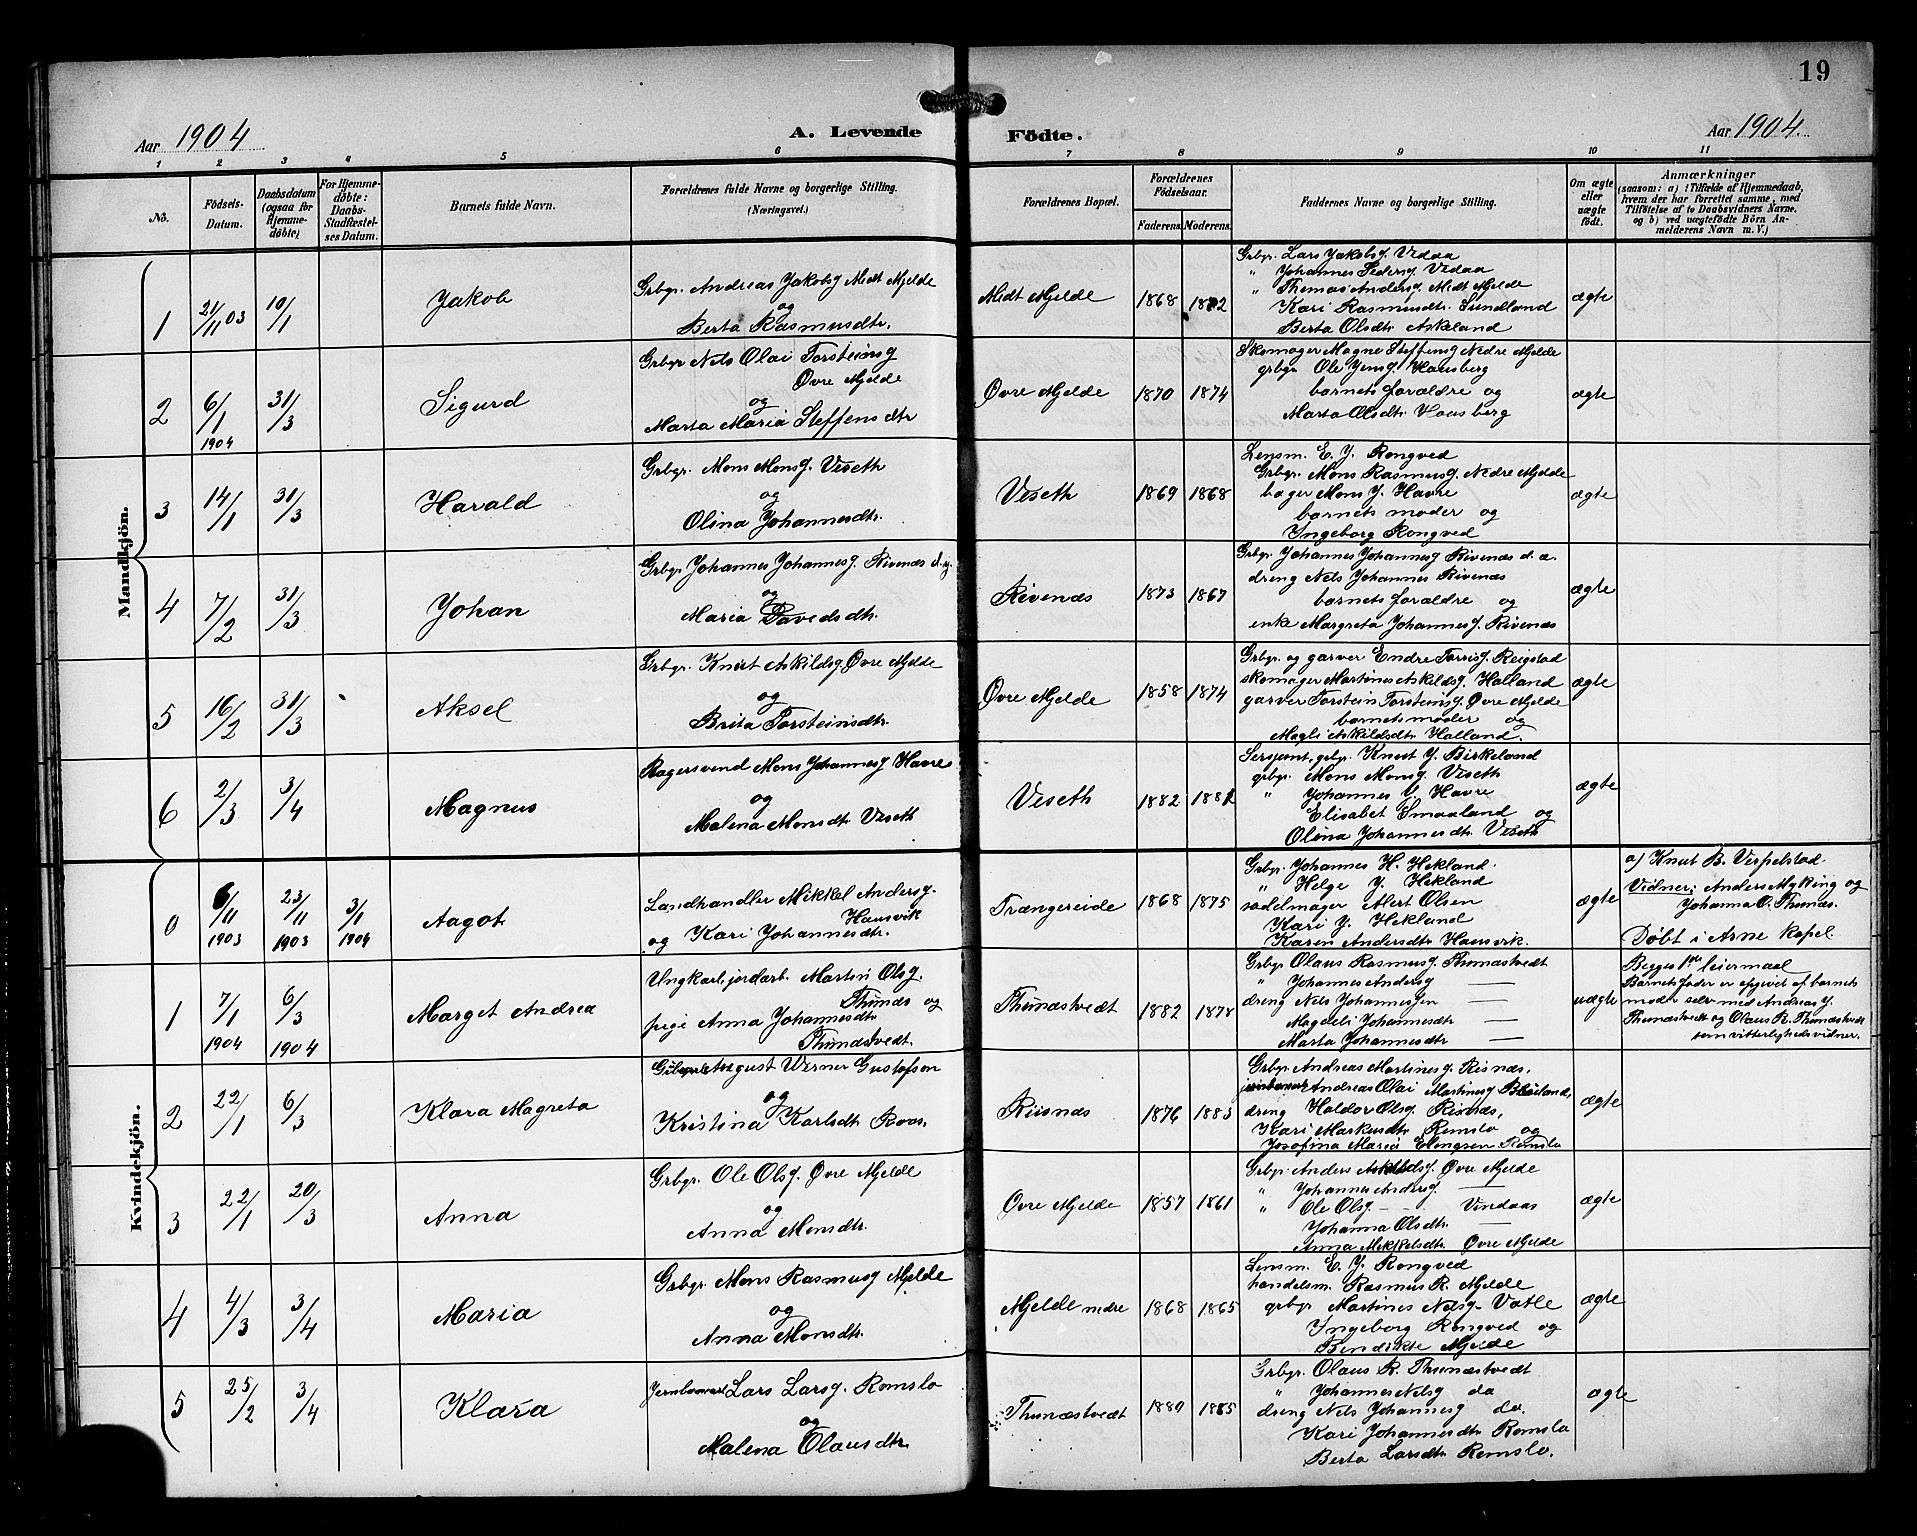 19
Aar 1904
A. Levende Födte.
Aar 1904.
1 2 3 4 5 6 7 8 9 10 11
No.
Födsels-
Datum.
Daabsdatum
(ogsaa for
Hjemme-
döbte)
For Hjemme-
döbte:
Daabs-
Stadfæstel-
ses Datum.
Barnets fulde Navn.
Forældrenes fulde Navne og borgerlige Stilling.
(Næringsvei.)
Forældrenes Bopæl.
Forældrenes
Födselsaar.
Faderens.
Moderens.
Faddernes Navne og borgerlige Stilling.
Om ægte
eller
uægte
födt.
Anmærkninger
(saasom: a) i Tilfælde af Hjemmedaab,
hvem der har forrettet samme, med
Tilföielse af to Daabsvidners Navne,
og b) ved uægtefödte Börn An-
melderens Navn m. V.)
Mandkjön.
1
21/11 03
10/1
Jakob
Grbgr. Andreas Jakobsg Midt Mjelde
og
Berta Rasmusdtr.
Midt Mjelde
1868
1872
Grbgr. Lars Jakobsg. Vedaa
" Johannes Pedersg. Vedaa
" Thomas Andersg. Midt Mjelde
Kari Rasmusdtr. Sundland
Berta Olsdtr Askeland
ægte
2
6/1
1904
31/3
Sigurd
Grbgr Nels Olai Torsteinsg
Øvre Mjelde
og
Marta Maria Steffensdtr
Øvre Mjelde
1870
1874
Skomager Magne Steffensg Nedre Mjelde
grbgr. Ole Jensg. Hausberg
barnets forældre og
Marta Olsdtr Hausberg
ægte
3
14/1
31/3
Harald
Grbgr. Mons Monsg. Veseth
og
Olina Johannesdtr.
Veseth
1869
1868
Lensm. E. J. Rongved
Grbgr. Mons Rasmusg. Nedre Mjelde
bager Mons J. Havre
barnets moder og
Ingeborg Rongved
ægte
4
7/2
31/3
Johan
Grbgr Johannes Johannesg. Rivenæs d.y.
og
Maria Davedsdtr.
Rivenæs
1873
1867
Grbgr. Johannes Johannesg Rivenæs d. æ.
dreng Nels Johannes Rivenæs
barnets forældre og
enke Margreta Johannesg. Rivenæs
ægte
5
16/2
31/3
Aksel
Grbgr. Knut Askildsg. Øvre Mjelde
og
Brita Torsteinsdtr.
Øvre Mjelde
1858
1874
Grbgr. og garver Endre Torrisg. Reigstad
skomager Martines Askildsg. Halland
garver Torstein Torsteinsg. Øvre Mjelde
barnets moder og
Magli Askildsdtr. Halland.
ægte
6
2/3
3/4
Magnus
Bagersvend Mons Johannesg Havre
og
Malena Monsdtr Veseth
Veseth
1882
Sersjant, grbgr. Knut J. Birkeland
grbgr. Mons Monsg. Veseth
" Johannes J. Havre
Elisabet Smaaland og
Olina Johannesdtr. Veseth
ægte
Kvindekjön.
0
6/11
1903
23/11
1903
3/1
1904
Aagot
Landhandler Mikkel Andersg.
Hausvik
og Kari Johannesdtr.
Trængereide
1868
1875
Grbgr. Johannes H. Hekland.
" Helge J. Hekland
sadelmager Alert Olsen
Kari J. Hekland
Karen Andersdtr Hausvik.
ægte
a) Knut B. Verpelstad.
Vidner: Anders Myking og
Johanna O. Thunæs.
Døbt i Arne kapel.
1
7/1
1904
6/3
1904
Marget Andrea
Ungkarl, jordarb. Martin Olsg.
Thunæs og
pige Anna Johannesdtr.
Thunæstvedt.
Thunæstvedt
1882
1878
Grbgr Olaus Rasmusg. Thunæstvedt
" Johannes Andersg —
dreng Nels Johannesgen —
Magdeli Johannesdtr —
Marta Johannesdtr —
uægte
Begges 1ste leiermaal
Barnets fader er opgivet af barnets
moder selv med Andreas J.
Thunæstvedt og Olaus R. Thunæstvedt
som vitterlighedsvidner.
2
22/1
6/3
Klara Magreta
August Werner Gustafson
og
Kristina Karlsdtr Roos.
Risnæs
1876
1883
Grbgr Andreas Martinesg. Risnæs,
Andreas Olai Martinesg
dreng Haldor Olsg. Risnæs,
Kari Markusdtr Romslo og
Josefina Maria Romslo
ægte
3
22/1
20/3
Anna
Grbgr. Ole Olsg. Øvre Mjelde
og
Anna Monsdtr.
Øvre Mjelde
1857
1861
Grbgr. Anders Askildsg. Øvre Mjelde
" Johannes Andersg. —
" Ole Olsg. — Vindaas
Johanna Olsdtr. —
Anna Mikkelsdtr. Øvre Mjelde
ægte
4
4/3
3/4
Maria
Grbgr. Mons Rasmusg Mjelde
og
Anna Monsdtr.
Mjelde nedre
1868
1865
Lensm. E. J. Rongved
handelsm. Rasmus R. Mjelde
grbgr. Martines Nelsg. Vatle
Ingeborg Rongved og
Bendikte Mjelde
ægte
5
25/2
3/4
Klara
Lars Larsg. Romslo
og
Malena Olausdtr.
Thunæstvedt
1880
1885
Grbgr. Olaus R. Thunæstvedt
" Johannes Nelsg do
dreng Nels Johannesg do.
Kari Johannesdtr Romslo
Berta Larsdtr Romslo.
ægte